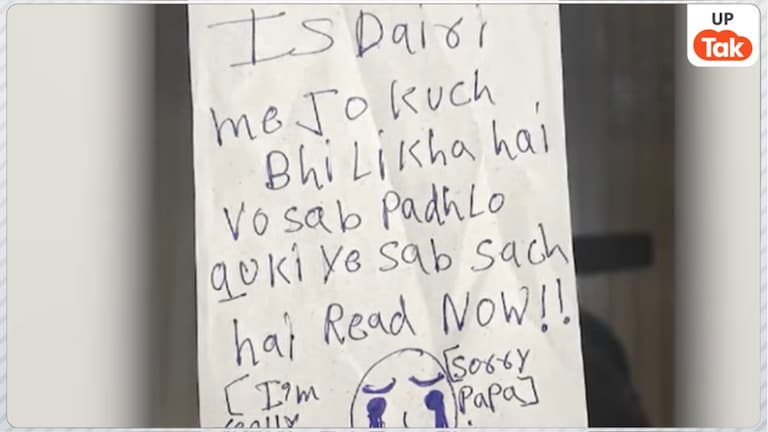 UP
Tak
IS Dairi
me Jo kuch
Bhi Likha hai
vo sab Padh Lo
quki ye sab sach
hai Read NOW!!
[sorry
[I'm
Papa]
really